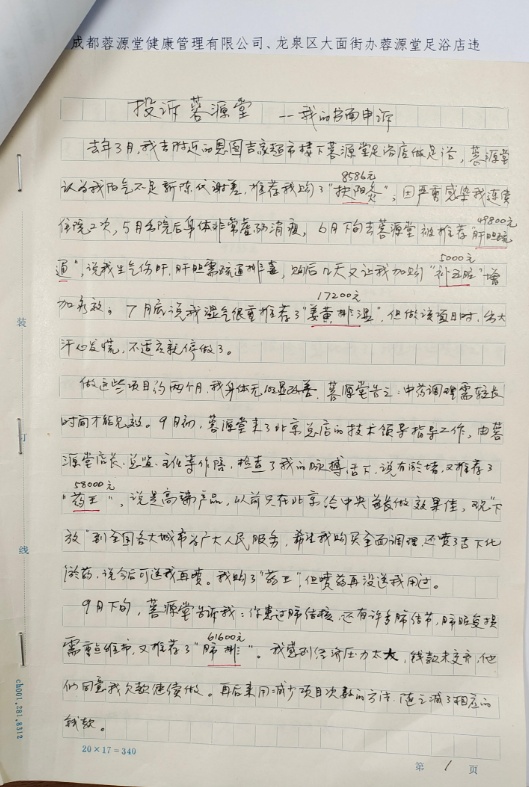 成都蓉源堂健康管理有限公司、龙泉区大面街办蓉源堂足浴店违
投诉蓉源堂 --我的书面申诉
去年3月,我去附近的恩国吉家超市楼下蓉源堂足浴店做足浴,蓉源堂
8586元
认为我阳气不足新陈代谢差,推荐我购了"扶阳灸",因严重感染我连续
49800元
住院二次,5月出院后身体非常虚弱消瘦,6月下旬去蓉源堂被推荐"肝胆疏
5000元
通",说我生气伤肝,肝胆需疏通排毒,购后几天又让我加购"补五脏"增
17200元
加免疫。7月底说我湿气很重推荐了"姜黄排湿",但做该项目时,出大
汗心发慌,不适应就停做了。
做这些项目约两个月,我身体无明显改善,蓉源堂告之:中药调理需较长
时间才能见效。9月初,蓉源堂来了北京总店的技术领导指导工作,由蓉
源堂店长、总监、主任等作陪,检查了我的脉搏舌下,说有淤堵,又推荐了
58000元
"药王",说是高端产品,以前只在北京给中央首长做效果佳,现"下
放"到全国各大城市为广大人民服务,希望我购买全面调理,还喷了舌下化
淤药,说今后可送我再喷。我购了"药王",但喷药再没送我用过。
9月下旬,蓉源堂告诉我:你患过肺结核,还有许多肺结节,肺脏受损
61600元
需重点维护,又推荐了"肺排"。我感到经济压力太大,钱款未交齐,他
们同意我欠款继续做。再后采用减少项目次数的方法,随之减了相应的
钱款。
装
订
线
20×17=340
第 1 页